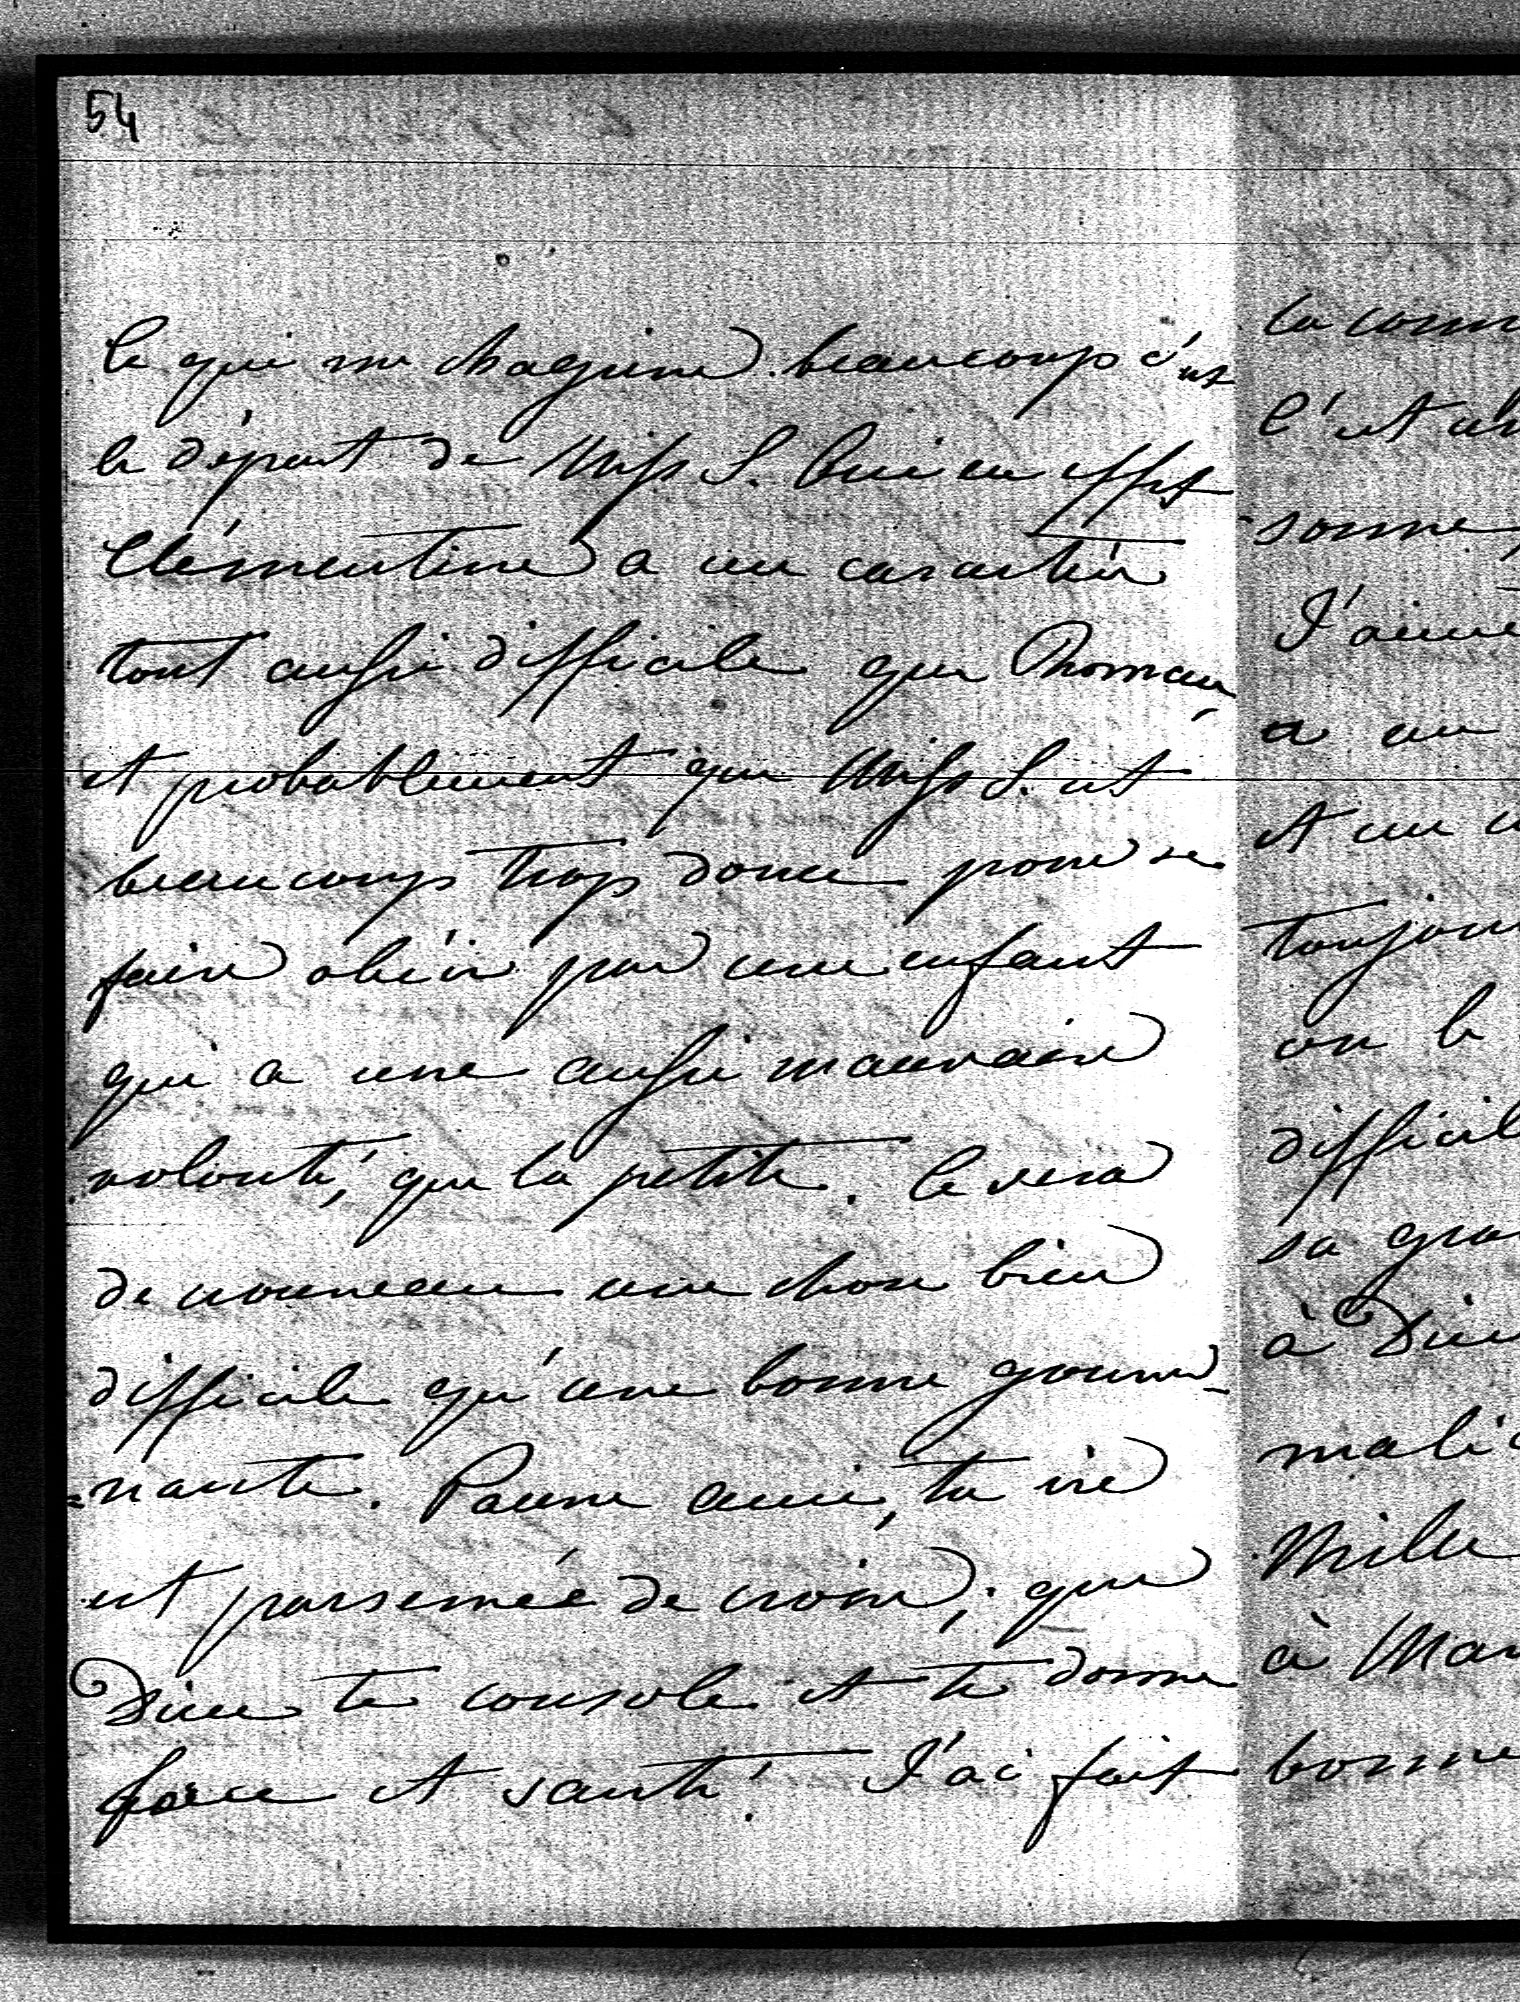 54
Ce qui me chagrine beaucoup c'est
le départ de Miss S. Oui en effet
Clémentine a un caractère
tout aussi difficile que Thomas,
et probablement que Miss S. est
beaucoup trop douce pour se
faire obéir par une enfant
qui a une aussi mauvaise
volonté, que la petite. Ce sera
de nouveau une chose bien
difficile qu'une bonne gouver-
=nante. Pauvre amie, ta vie
est parsemée de croix, que
Dieu te console et te donne
force et santé! J'ai fait
la conn
C'est un
sonne,
J'aime
a un
et un
toujou
on le
difficil
sa gra
à Dieu
mali
Mille
à Mar
bonne